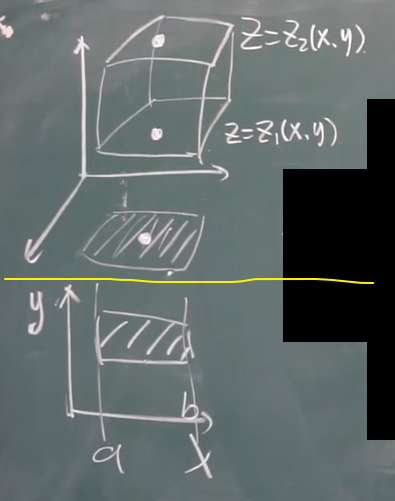 z=z₂(x,y)
z=z₁(x,y)
y
b
a
x